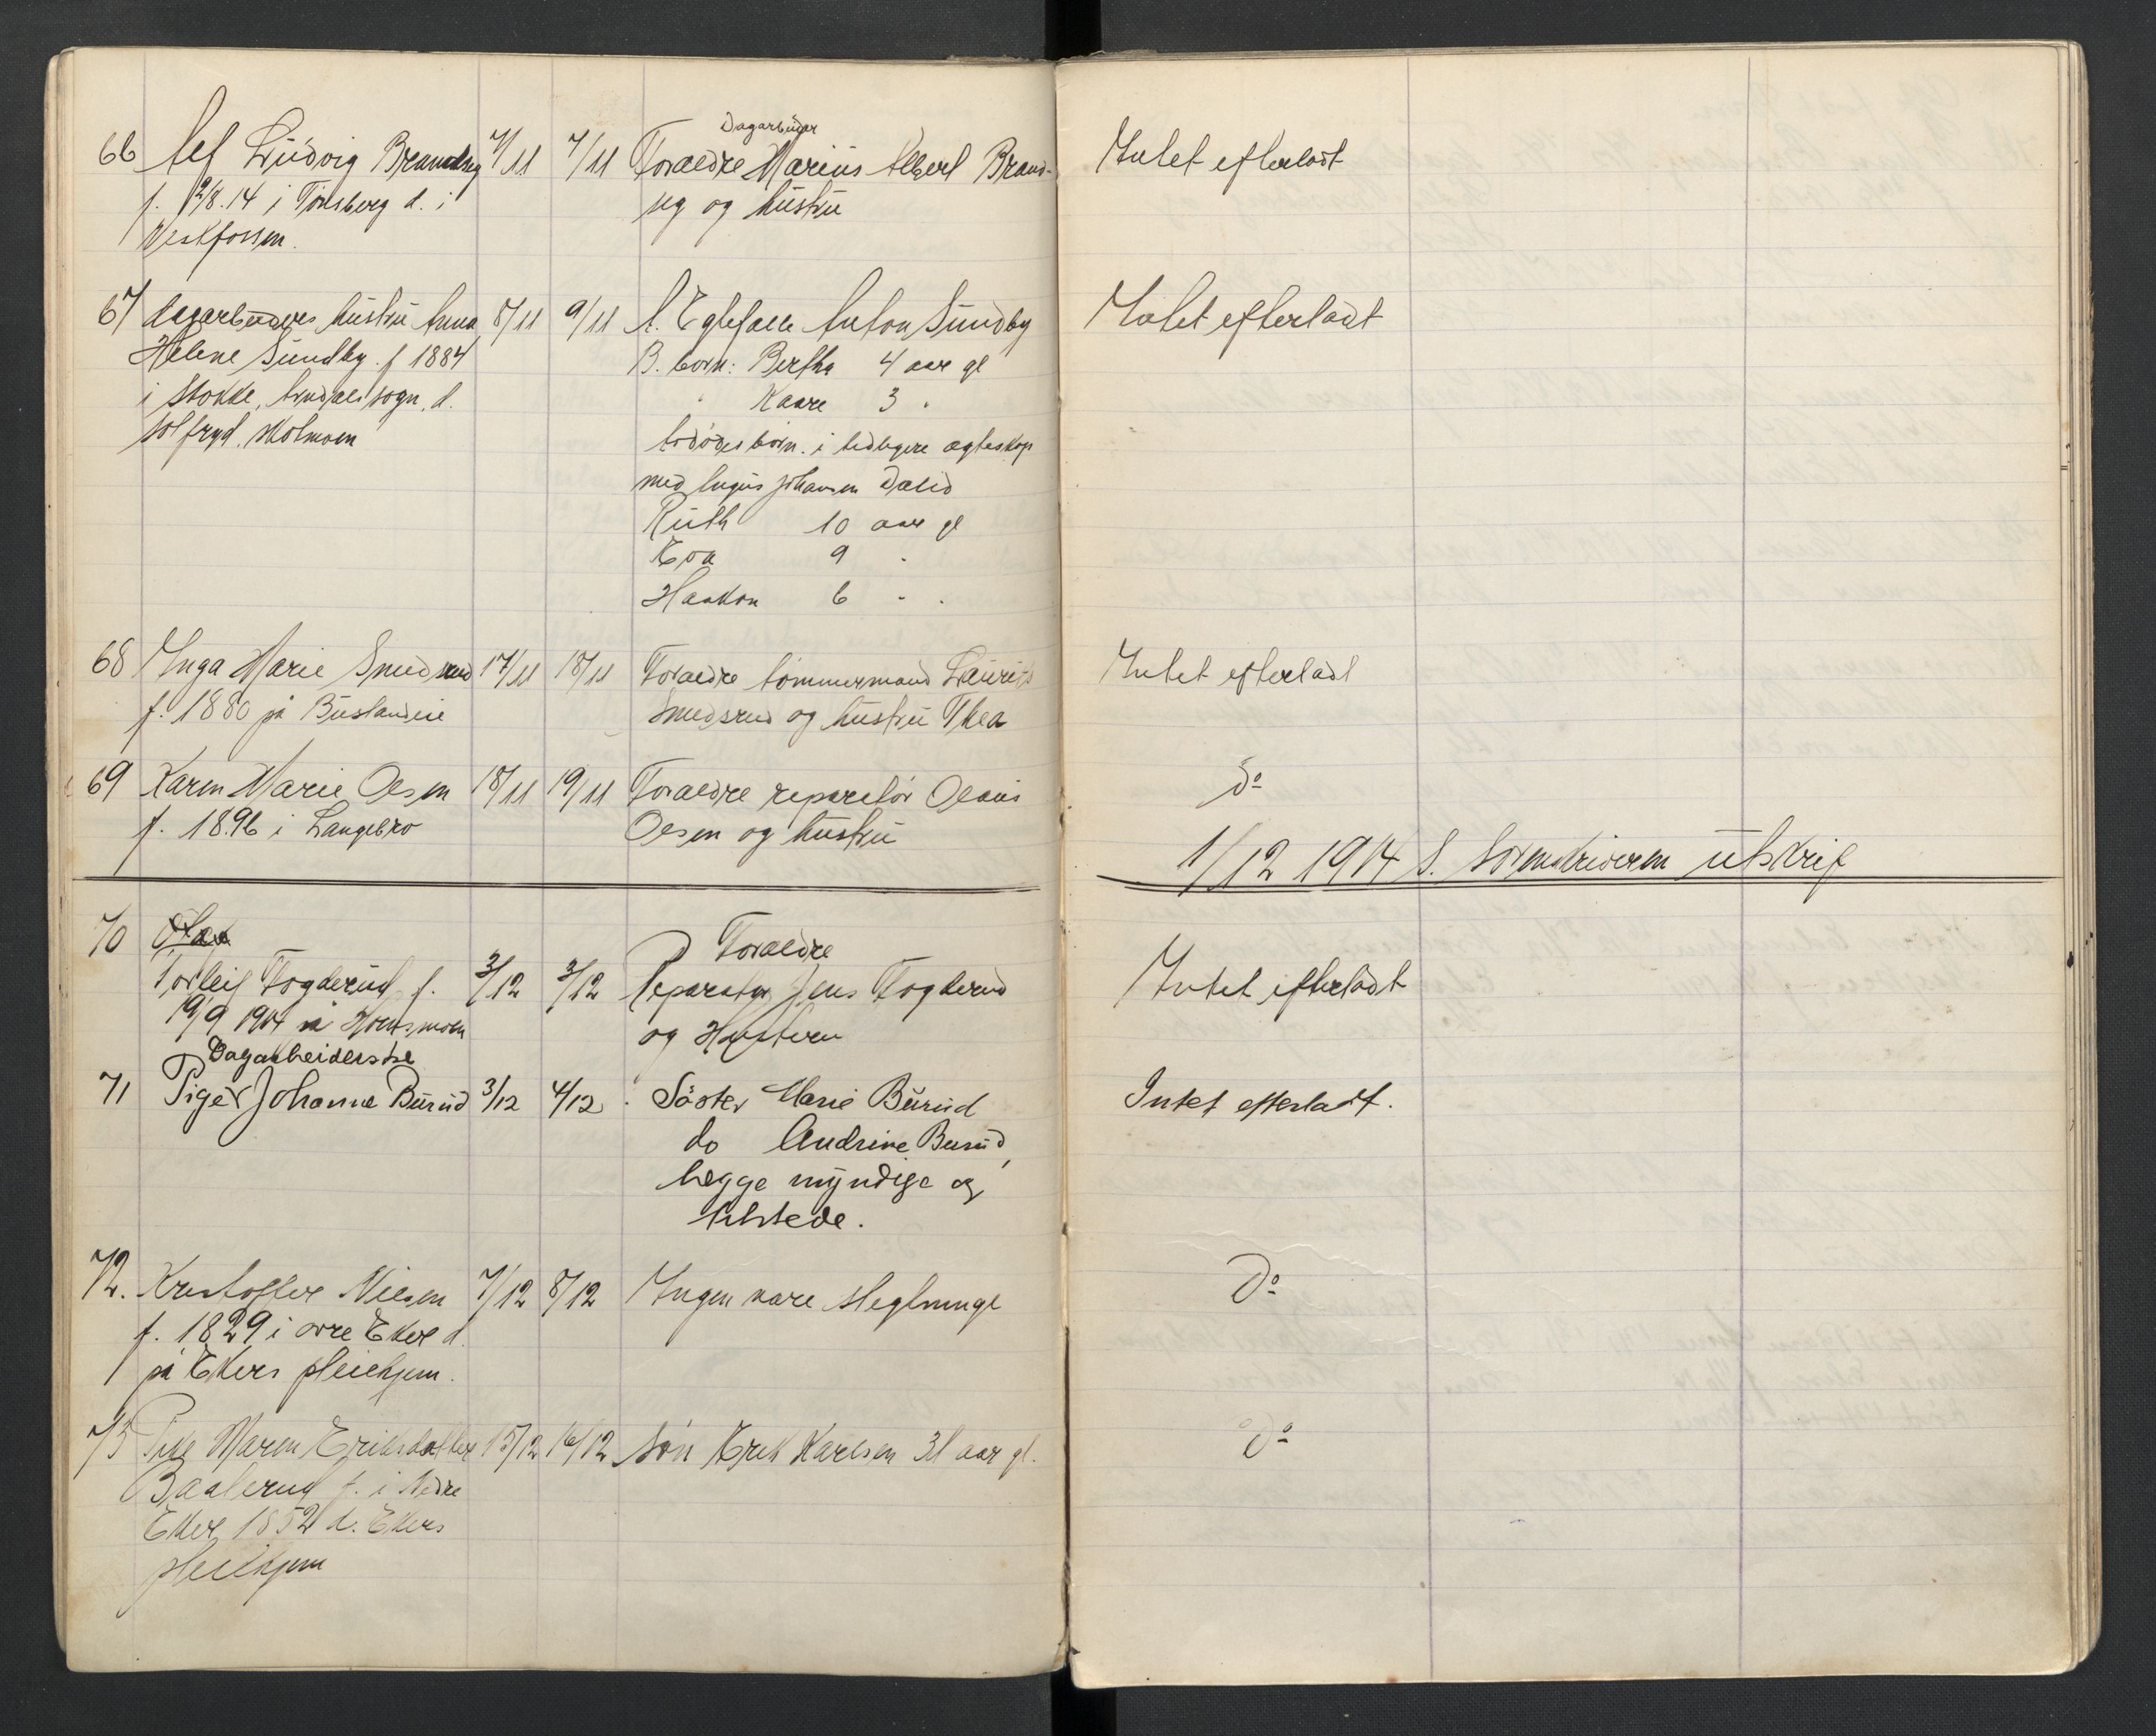 66 Alf Ludvig Brandseg 7/11 7/11 Dagarbeider Intet efterladt
Foraeldre Marius Albert Brand-
f. 12/8.14 i Tønsberg d. i seg og hustru
Vestfossen.
67 dagarbeiders hustru Anna 8/11 9/11 A. Egtefælle Anton Sundby Intet efterladt
Helene Sundby. f 1884 B. børn: Bertha 4 aar gl
i Stokke, sogn, d. Kaare 3 "
Solfryd. Holmoen
børn. i tidligere ægteskap
med Johansen Dalid
Ruth 10 aar gl
Eva 9 "
Haakon 6 " "
68 Inga Marie Smedsrud 17/11 18/11 Foraeldre tømmermand Laurits Intet efterladt
f. 1880 på Buslandeie Smedsrud og hustru Thea
69 Karen Marie Olsen 18/11 19/11 Foraeldre reparatør Olaus do
f. 1896 i Langebro Olsen og hustru
1/12 1914 S. Sorenskriveren utskrif
70 Olaf
Foraeldre
Torleif Fogderud f. 3/12 3/12 Reparatør Jens Fogderud Intet efterladt
19/9 1914 på Hoensmoen og Hustru
Dagarbeiderske
71 Pige Johanne Burud 3/12 4/12 Søster Marie Burud Intet efterladt.
do Andrine Burud,
begge myndige og
tilstede.
72. Kristoffer Nilsen 7/12 8/12 Ingen nære slegtninge do
f. 1829 i øvre Eker d.
på Ekers pleiehjem.
73 Pike Maren Eriksdatter 15/12 16/12 Søn Erik Karlsen 31 aar gl. do
Baalerud f. i Nedre
Eker 1852 d. Ekers
pleiehjem